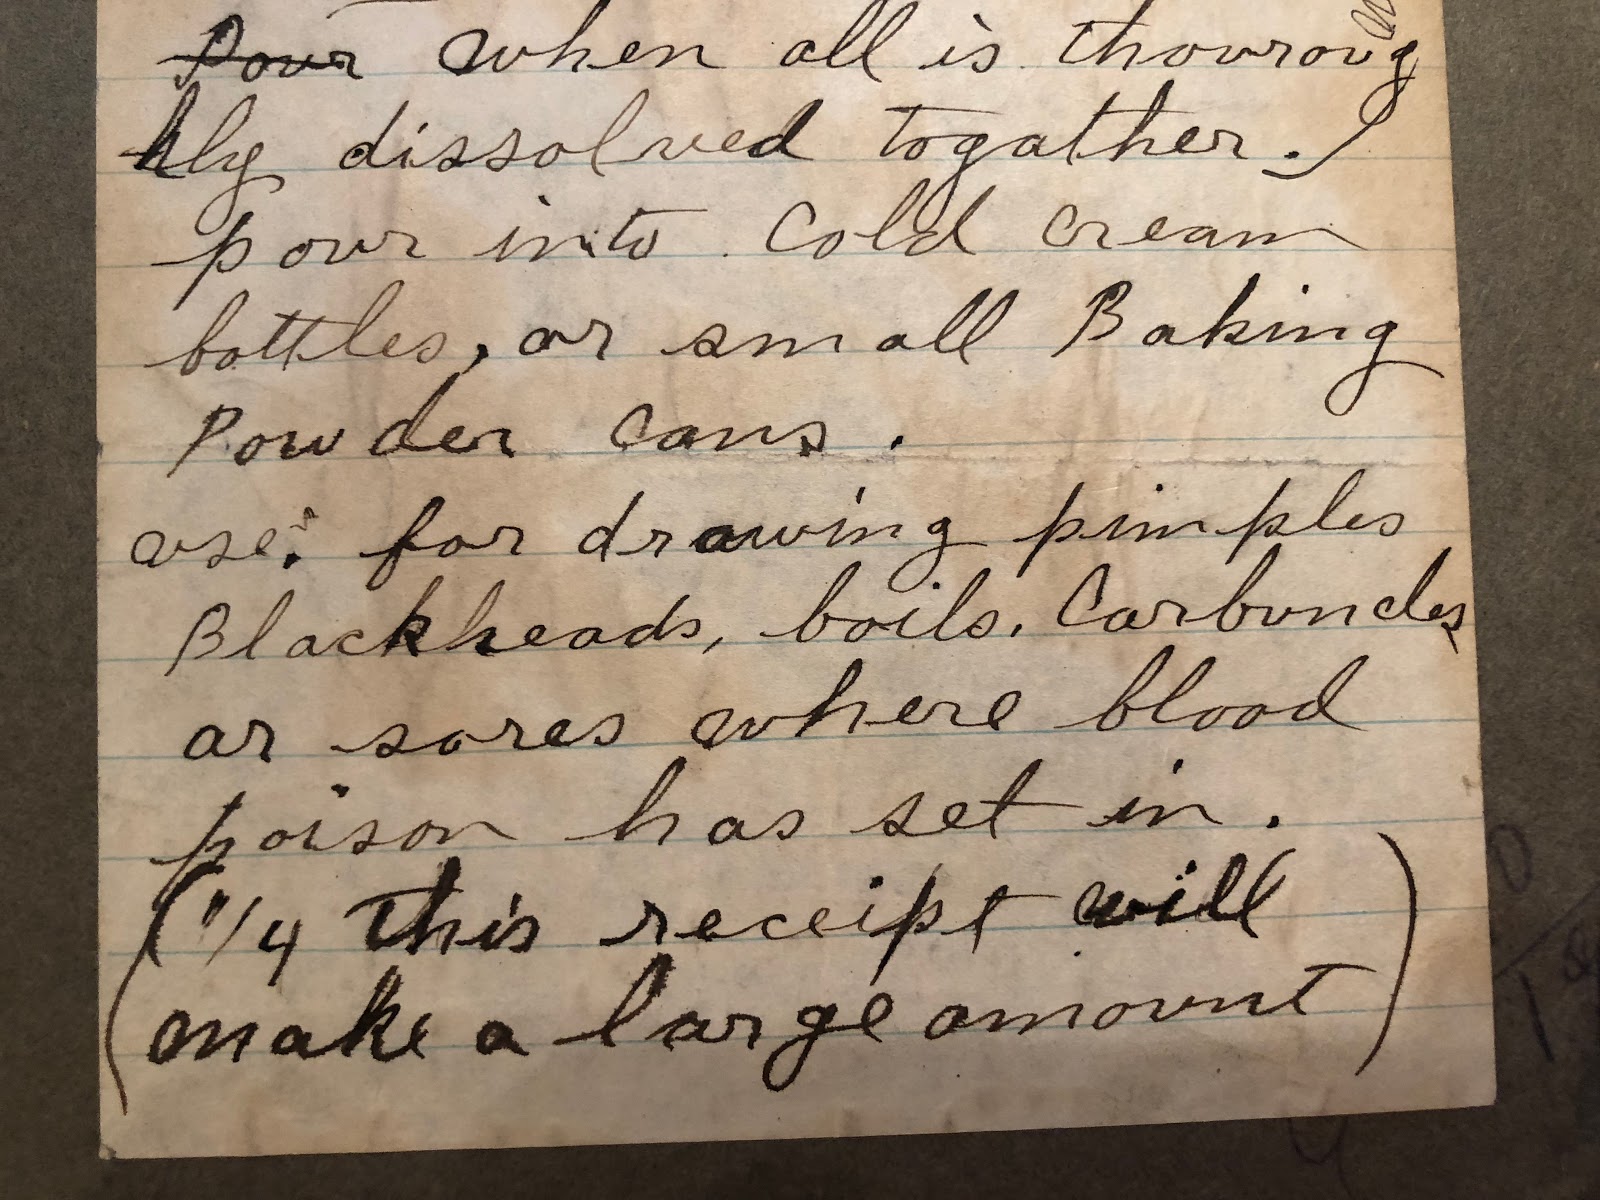 Pour when all is thouroug
hly dissolved togather.
pour into Cold Cream
bottles, or small Baking
Powder Cans.
use: for drawing pimples
Blackheads, boils. Carbuncles
or sores where blood
poison has set in.
(1/4 this receipt will
make a large amount)